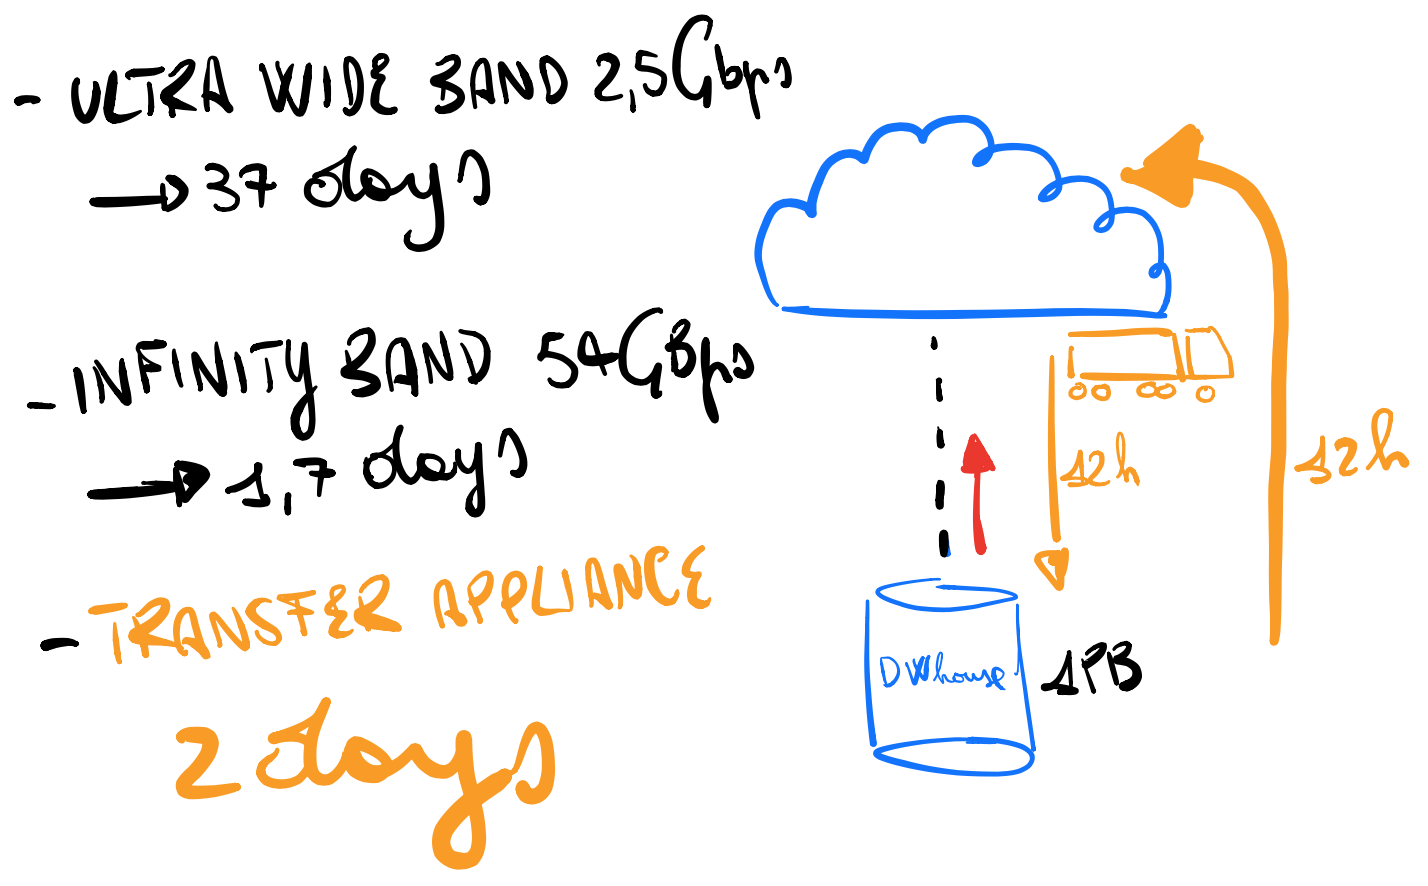 - ULTRA WIDE BAND 2,5Gbps
→ 37 days
- INFINITY BAND 54GBps
→ 1,7 days
- TRANSFER APPLIANCE
2 days
12h
12h
DWhouse
1PB